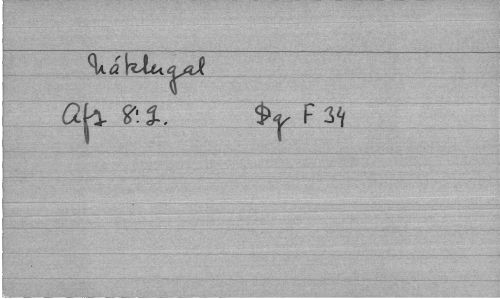 Náktergal
Afz 8:2. Dq F 34